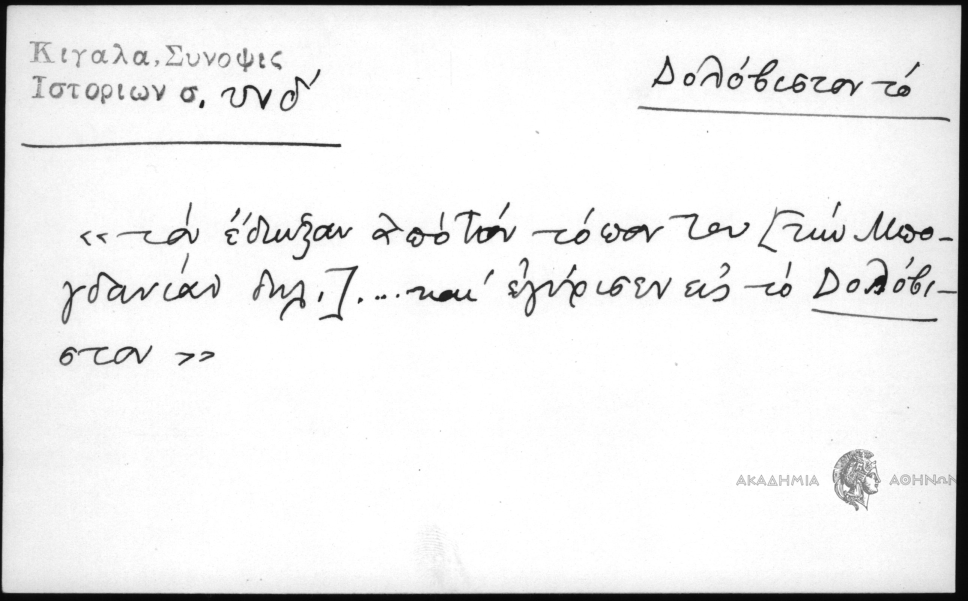 Κιγαλα, Συνοψις
Ιστοριων σ. υνδ'
Δολόβιστον τό
«τόν ἔδιωξαν ἀπό τόν τόπον του [τήν Μπο-
γδανίαν δηλ.]. ... καί ἐγύρισεν εἰς τό Δολόβι-
στον»
ΑΚΑΔΗΜΙΑ ΑΘΗΝΩΝ